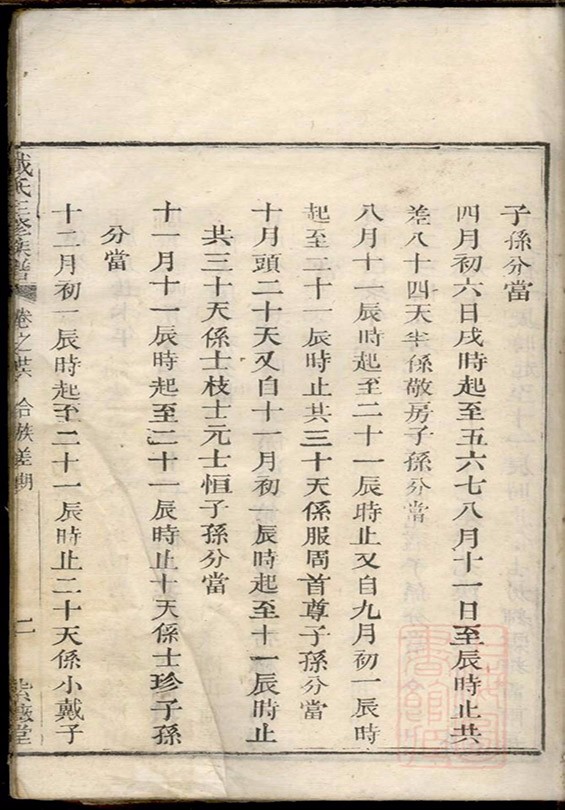 子孫分當
四月初六日戌時起至五六七八月十一日至辰時止共
差八十四天半係敬房子孫分當
八月十一辰時起至二十一辰時止又自九月初一辰時
起至二十一辰時止共三十天係服周首尊子孫分當
十月頭二十天又自十一月初一辰時起至十一辰時止
共三十天係士枝士元士恒子孫分當
十一月十一辰時起至二十一辰時止十天係士珍子孫
分當
十二月初一辰時起至二十一辰時止二十天係小戴子
戴氏三修族譜 卷之 合族差期 二 紫薇堂